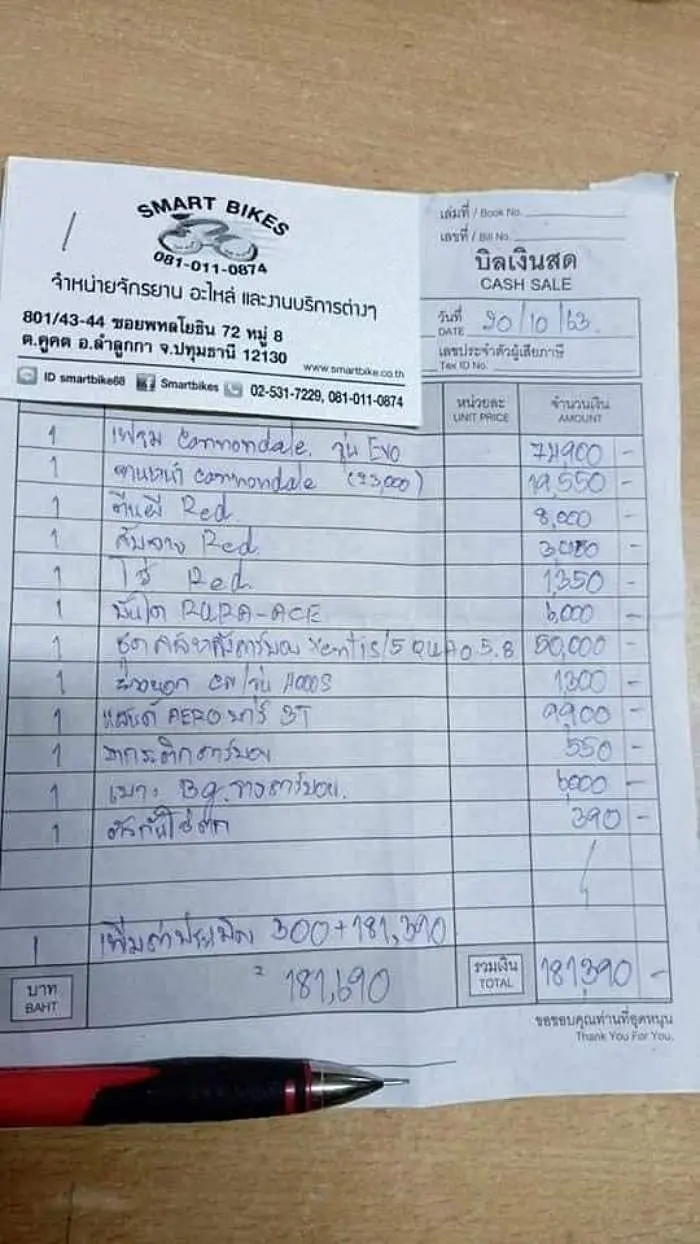 SMART BIKES
081-011-0874
จำหน่ายจักรยาน อะไหล่ และงานบริการต่างๆ
801/43-44 ซอยพหลโยธิน 72 หมู่ 8
ต.คูคต อ.ลำลูกกา จ.ปทุมธานี 12130
www.smartbike.co.th
ID smartbike68 Smartbikes 02-531-7229, 081-011-0874
เล่มที่ / Book No.
เลขที่ / Bill No.
บิลเงินสด
CASH SALE
วันที่
DATE 20/10/63
เลขประจำตัวผู้เสียภาษี
Tax ID No.
หน่วยละ จำนวนเงิน
UNIT PRICE AMOUNT
1 เฟรม Cannondale รุ่น Evo 74,900 -
1 จานหน้า Cannondale (23,000) 19,550 -
1 ตีนผี Red 8,000 -
1 สับจาน Red -
1 โซ่ Red 1,350 -
1 DURA-ACE 6,000 -
1 ชุดล้อหลังคาร์บอน Xentis/SQUAD 5.8 50,000 -
1 ยางนอก รุ่น 4000S 1300 -
1 แฮนด์ AERO บาร์ 3T 9,900 -
1 ขากระติกคาร์บอน 550 -
1 เบาะ รางคาร์บอน 6,000 -
1 ตัวกันโซ่ตก 390 -
1 เพิ่มค่าประเมิน 300+181,390
บาท 181,690 รวมเงิน 181,390 -
BAHT TOTAL
ขอขอบคุณท่านที่อุดหนุน
Thank You For You.